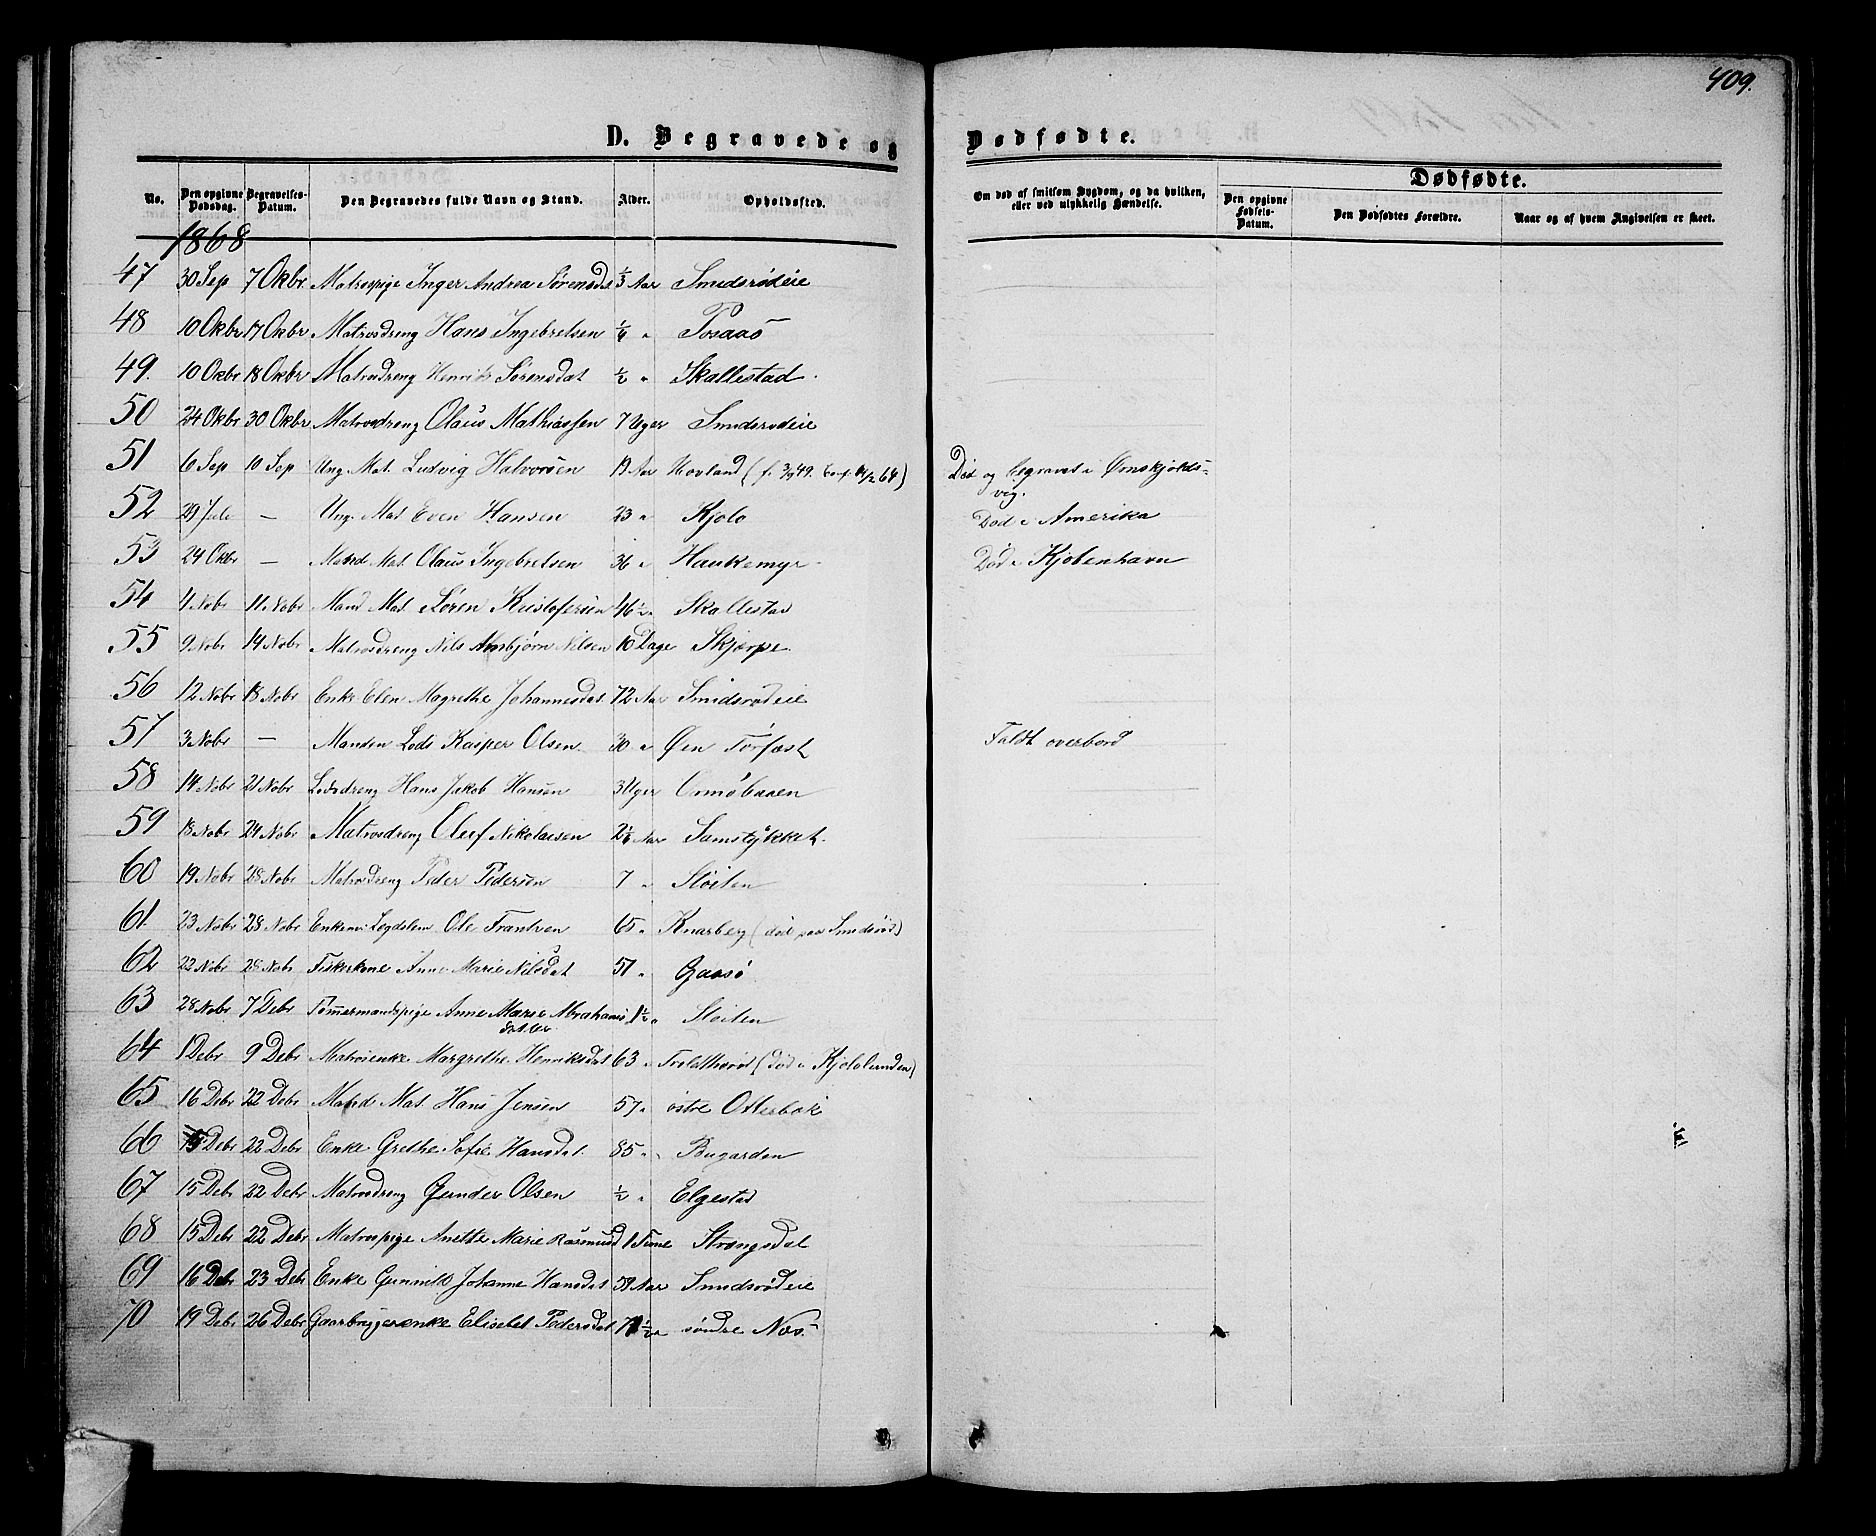 409.
D. Begravede og Dødfødte.
No. Den opgivne Dødsdag. Begravelses-Datum. Den Begravedes fulde Navn og Stand. Alder. Opholdssted. Om død af smitsom Sygdom, og da hvilken, eller ved ulykkelig Hændelse. Dødfødte. Den opgivne Fødsels-Datum. Den Dødfødtes Forældre. Naar og af hvem Angivelsen er skeet.
1868
47 30 Sep 7 Okbr Matrospige Inger Andrea Sørensdat 1/3 Aar Smidsrødeie
48 10 Okbr 17 Okbr Matrosdreng Hans Ingebretsen 1/4 " Bosaas
49. 10 Okbr 18 Okbr Matrosdreng Henrik Sørensdat 1/2 " Skallestad
50 24 Okbr 30 Okbr Matrosdreng Olaus Mathiassen 7 Uger Smidsrødeie
51 6 Sep 10 Sep Ung. Mat. Ludvig Halvorsen 19 Aar Hovland (f. 3/9 49. Conf. 64) Død og begravet i Ørnskjolds-
vig.
52 29 Juli — Ung. Mat Even Hansen 23 " Kjølø Død i Amerika
53 24 Okbr — Mand Mat. Olaus Ingebretsen 36 " Haukemyr Død i Kjøbenhavn
54 4 Nobr 11 Nobr Mand Mat. Søren Kristofersen 46 1/2 " Skallestad
55 9 Nobr 14 Nobr Matrosdreng Nils Arnbjørn Nilsen 10 Dage Skjærpe
56 12 Nobr 18 Nobr Enke Elen Magrethe Johannesdat 72 Aar Smidsrødeie
57 3 Nobr — Manden Lods Kasper Olsen 30 " Øen Torfæst Faldt overbord
58 14 Nobr 21 Nobr Lodsdreng Hans Jakob Hansen 3 Uger Ormøbaaen
59 18 Nobr 24 Nobr Matrosdreng Oluf Nikolaisen 2 1/4 Aar Samstykket.
60 19 Nobr 28 Nobr Matrosdreng Peder Pedersen 7 " Sløiten
61. 23 Nobr 28 Nobr Enkem. Lægdslem Ole Frantzen 65 " Knarberg (død paa Smidsrød)
62 22 Nobr 28 Nobr Fiskerkone Anne Marie Nilsdat 51 " Gaasø
63 28 Nobr 7 Debr Tømmermandspige Anne Marie Abrahams 1 1/2 " Sløiten
datter
64 1 Debr 9 Debr Matrosenke Margrethe Henriksdat 63 " Troldthvet (død i Kjølølunden)
65 16 Debr 22 Debr Mand Mat. Hans Jensen 57 " østre Otterbæk
66 15 Debr 22 Debr Enke Grethe Sofie Hansdat 85 " Bugarden
67 15 Debr 22 Debr Matrosdreng Gunder Olsen 1/2 " Elgestad
68 15 Debr 22 Debr Matrospige Anette Marie Rasmusd 1 Time Strengsdal
69 16 Debr 23 Debr Enke Gunnild Johanne Hansdat 59 Aar Smidsrødeie
70 19 Debr 26 Debr Gaarbrugerenke Eliset Pedersdat 71 1/2 " søndre Næs